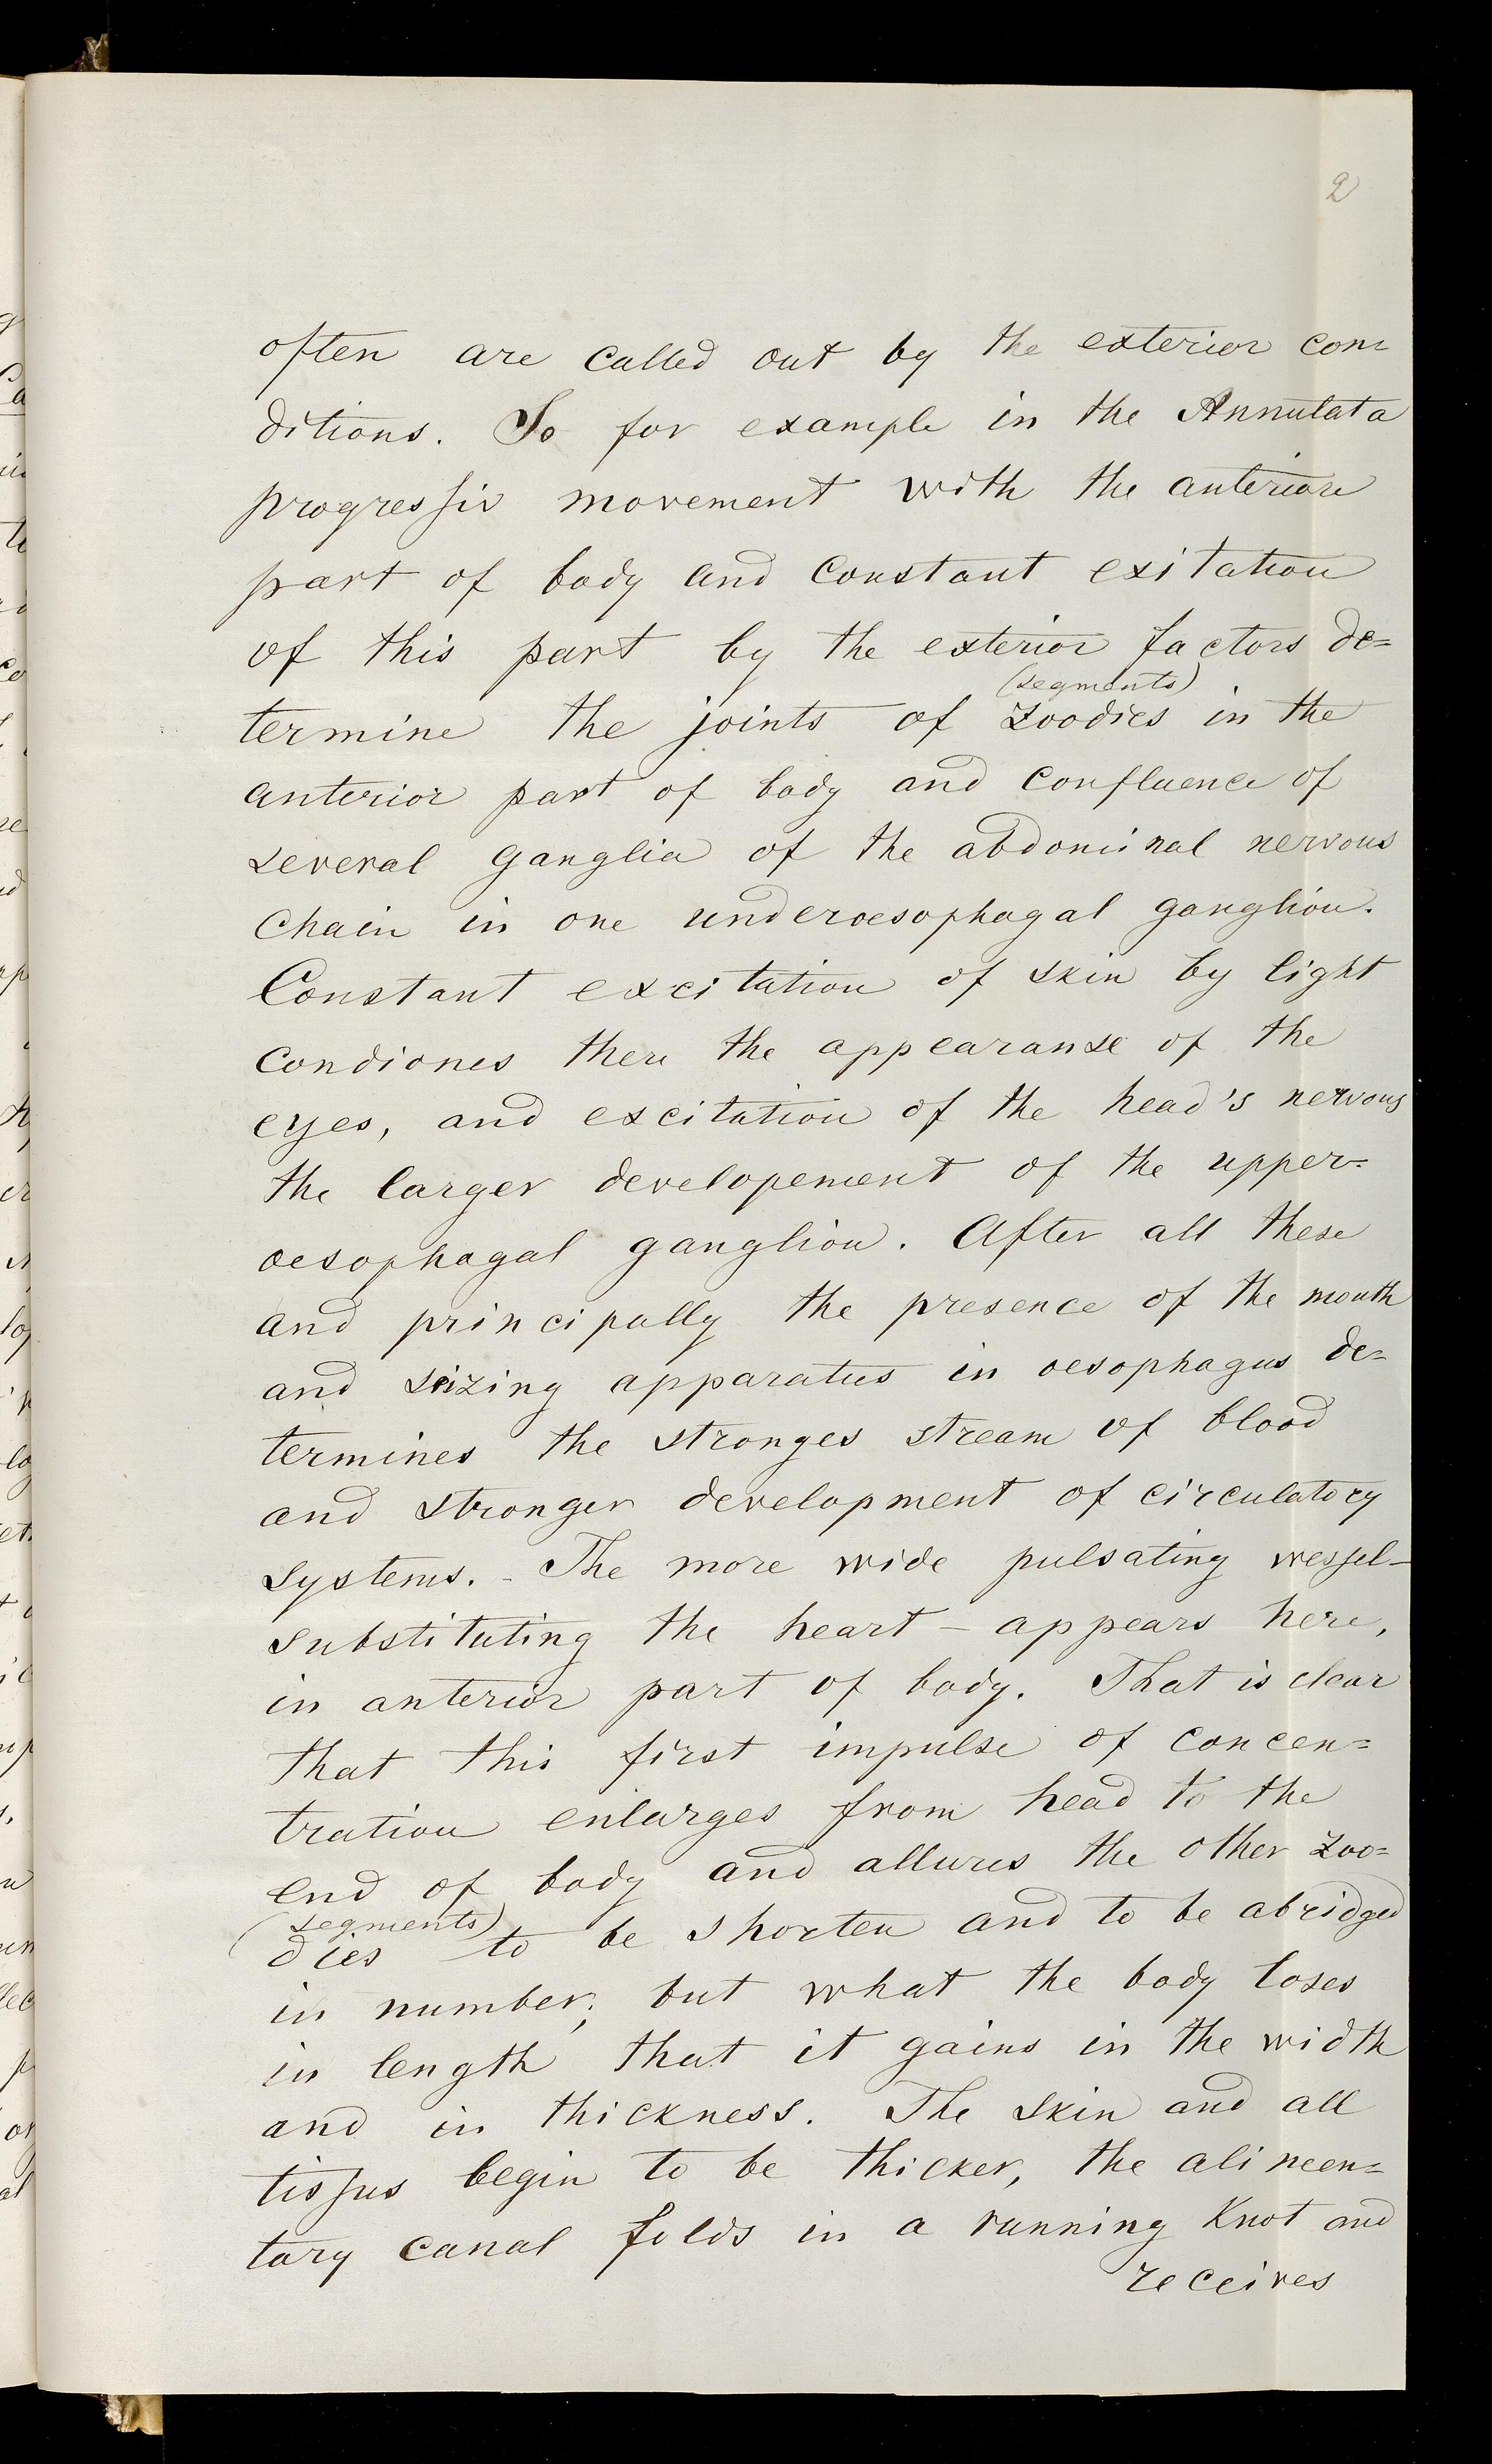 2
often are called out by the exterior con=
ditions. So for example in the Annulata
progressiv movement with the anteriore
part of body and constant exitation
of this part by the exterior factors de=
(segments)
termine the joints of zoodies in the
anterior part of body and confluence of
several ganglia of the abdominal nervous
chain in one underoesophagal ganglion.
Constant excitation of skin by light
condiones there the appearanse of the
eyes, and excitation of the head's nervous
the larger developement of the upper=
oesophagal ganglion. After all these
and principally the presence of the mouth
and seizing apparatus in oesophagus de=
termines the stronges stream of blood
and stronger development of circulatory
systems. - The more wide pulsating wessel -
substituting the heart - appears here,
in anterior part of body. That is clear
that this first impulse of concen=
tration enlarges from head to the
end of body and allures the other zoo=
(segments)
dies to be shorten and to be abridged
in number; but what the body loses
in length that it gains in the width
and in thickness. The skin and all
tissus begin to be thicker, the alimen=
tary canal folds in a running knot and
receives